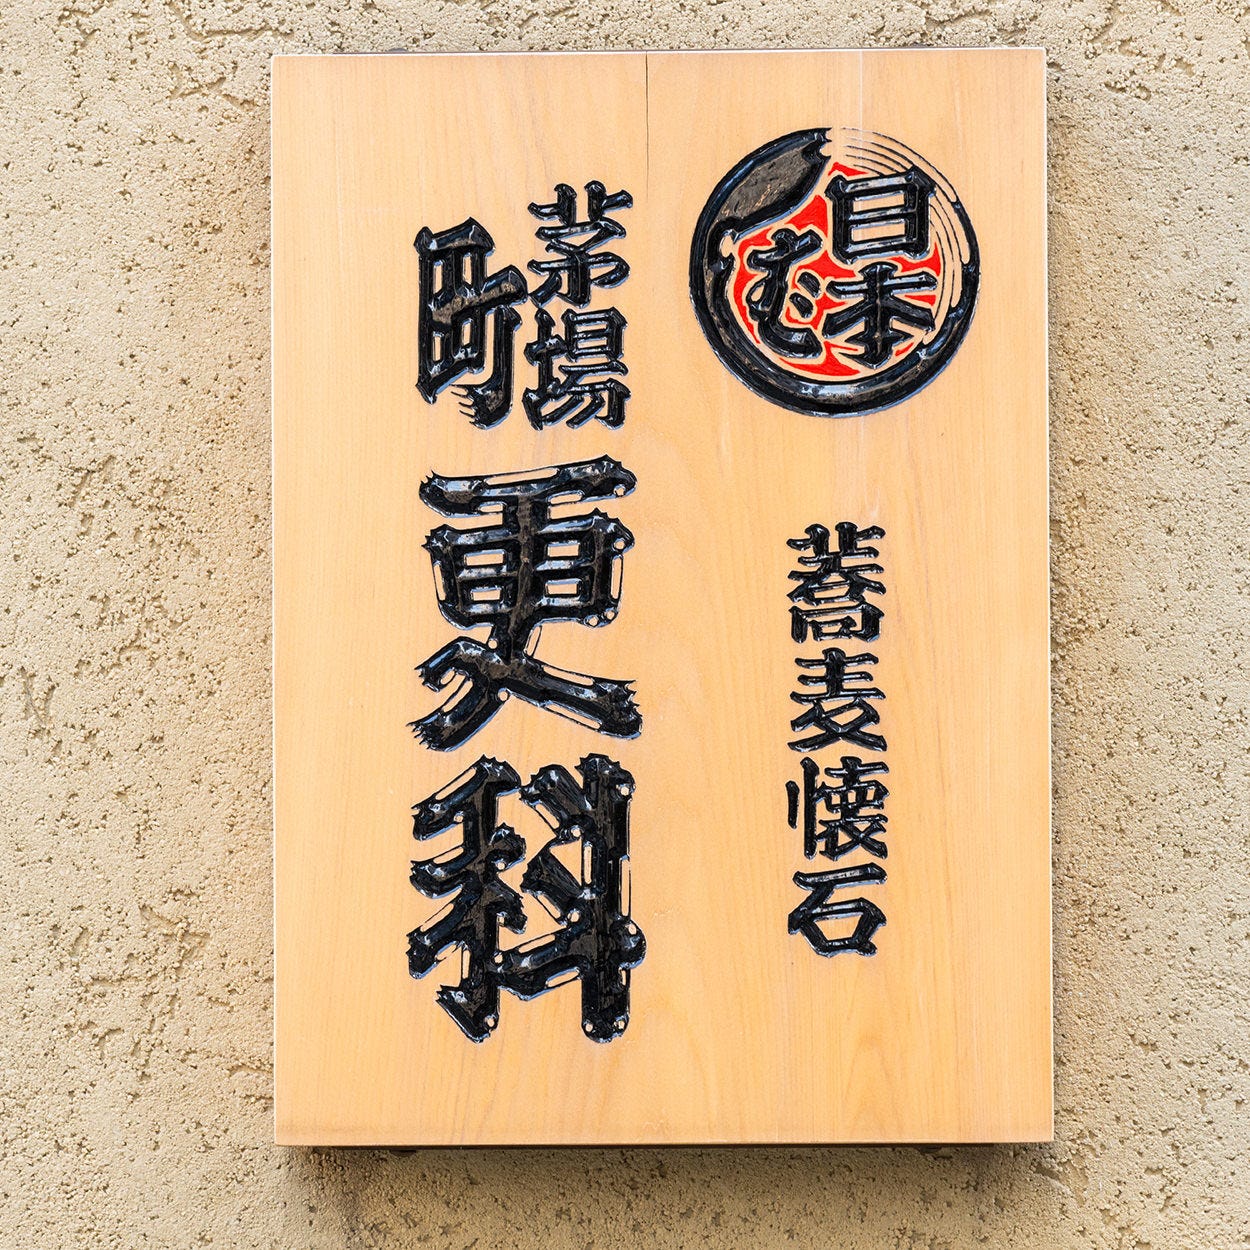 日本
むし
蕎麦懐石
茅場町
更科